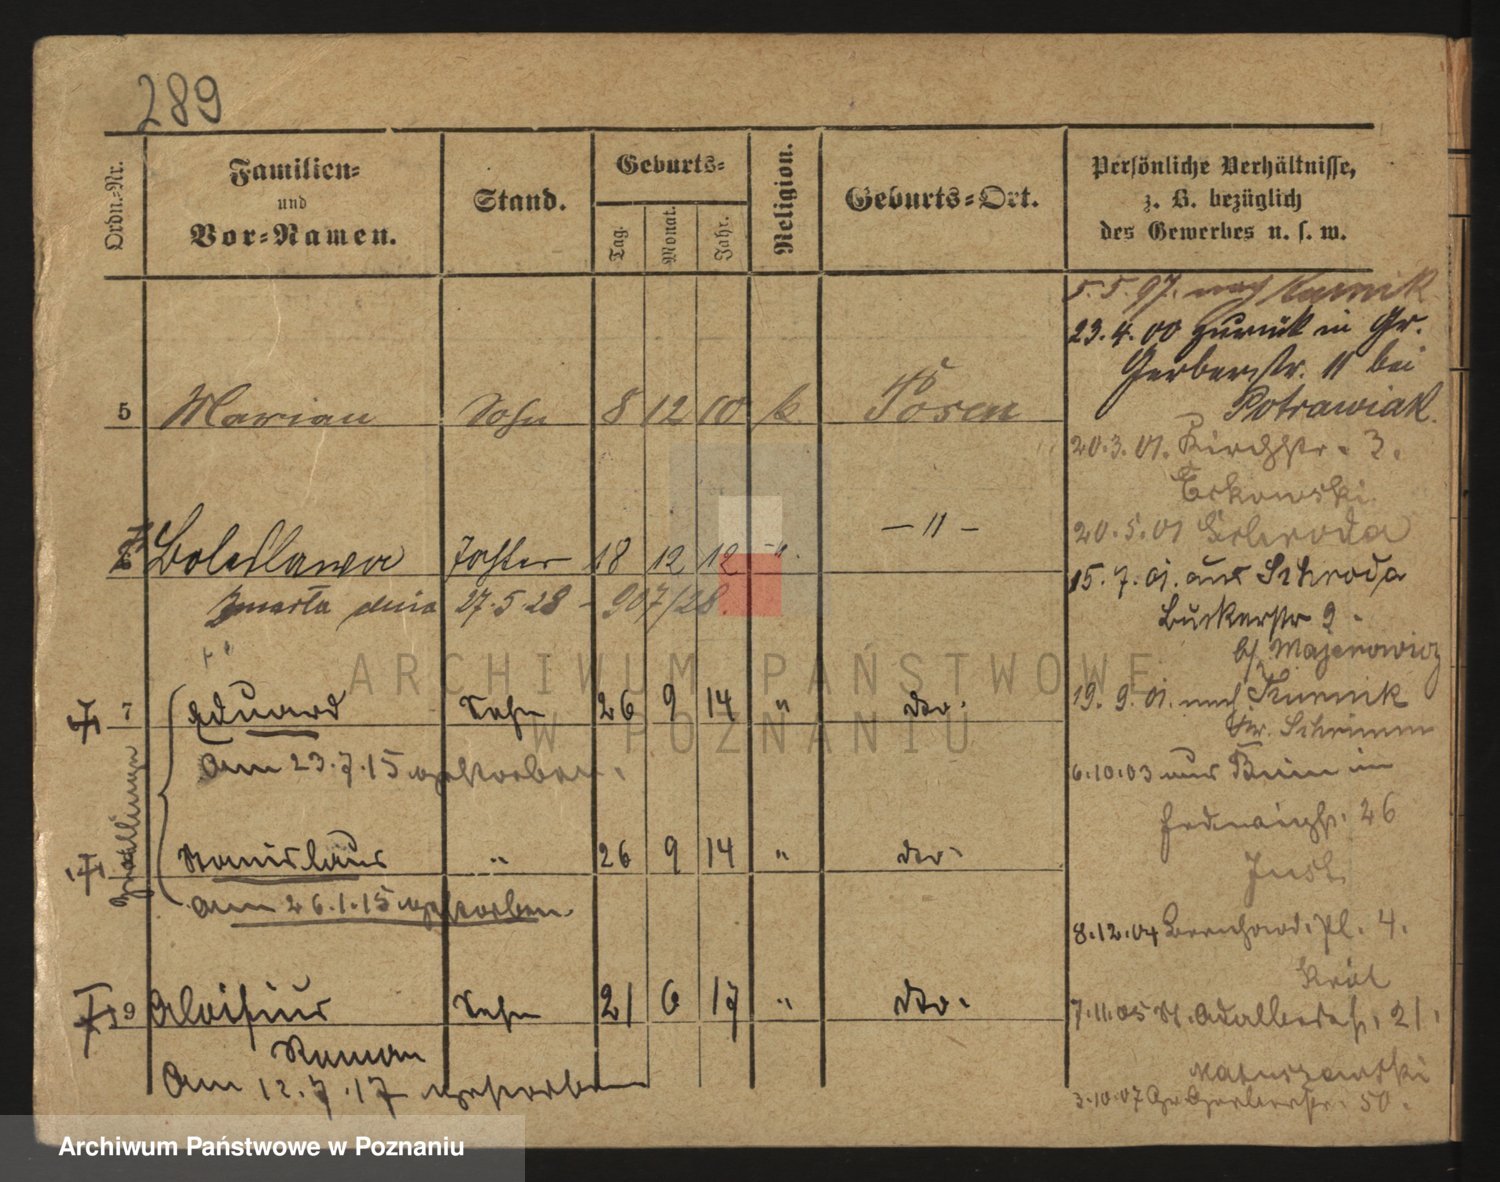 289
Ordn.-Nr.
Familien-
und
Vor-Namen.
Stand.
Geburts-
Tag.
Monat.
Jahr.
Religion.
Geburts-Ort.
Persönliche Verhältnisse,
z. B. bezüglich
des Gewerbes u. s. w.
5.5.97. nach Kurnik
23.4.00 zurück in Gr.
Gerberstr. 11 bei
Potrawiak.
5 Marian Sohn 8 12 10 k. Posen
20.3.01. Kirchstr. 3.
20.5.01 Schroda
Boleslawa Tochter 18 12 12 " — " —
15.7.01. aus Schroda
Zmarła dnia 27.5.28 - 907/28.
9.
b/ Majerowicz
7 Eduard Sohn 26 9 14 " dto.
19.9.01. nach Kurnik
Kr. Schrimm
am 23.7.15 gestorben.
6.10.03 aus Bnin in
Hedwigstr. 26
Just
Zwillinge
Stanislaus " 26 9 14 " dto.
am 26.1.15 gestorben.
8.12.04 Bernhard. Pl. 4.
Król
9 Aloisius Sohn 21 6 17 " dto.
7.11.05 St. Adalbertstr. 21.
Roman
am 12.7.17 gestorben
Matuszewski
3.10.07 Gr. Gerberstr. 50.
ARCHIWUM PAŃSTWOWE
W POZNANIU
Archiwum Państwowe w Poznaniu